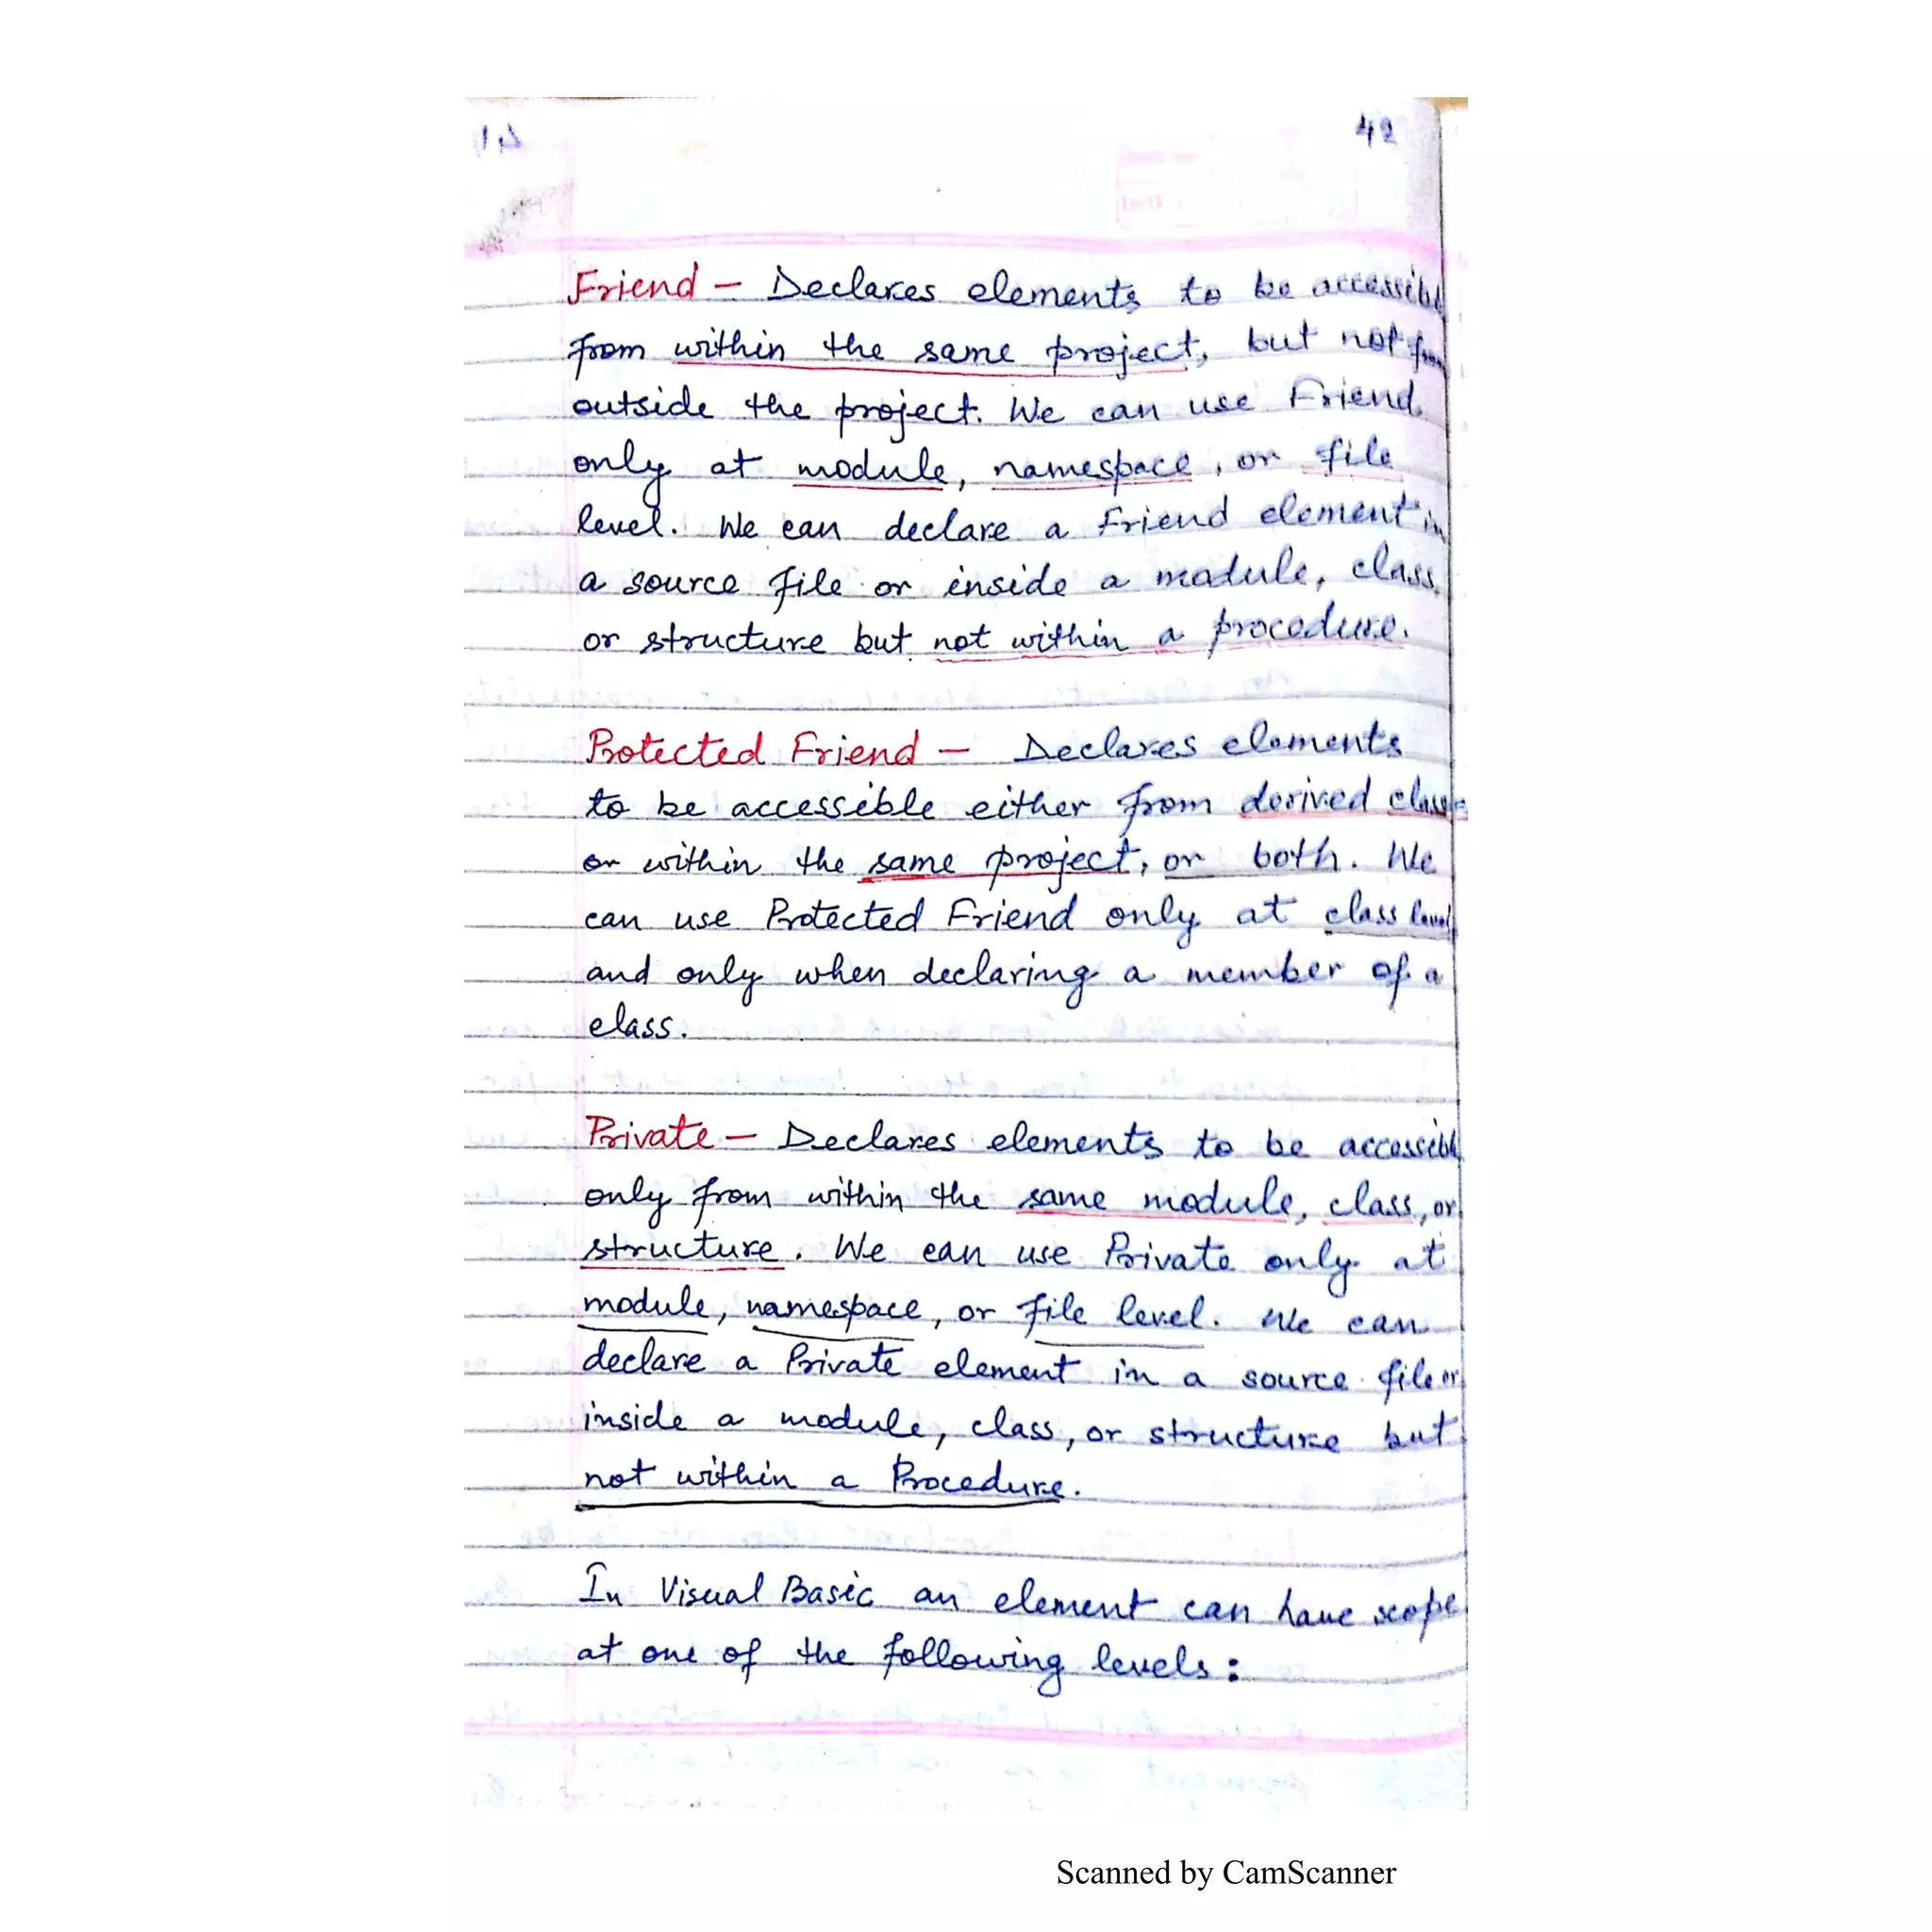 42
Friend - Declares elements to be accessibl
from within the same project, but not from
outside the project. We can use Friend
only at module, namespace, or file
level. We can declare a Friend element in
a source file or inside a module, class,
or structure but not within a procedure.
Protected Friend - Declares elements
to be accessible either from derived classes
or within the same project, or both. We
can use Protected Friend only at class level
and only when declaring a member of a
class.
Private - Declares elements to be accessibl
only from within the same module, class, or
structure. We can use Private only at
module, namespace, or file level. We can
declare a Private element in a source file or
inside a module, class, or structure but
not within a Procedure.
In Visual Basic an element can have scope
at one of the following levels:
Scanned by CamScanner